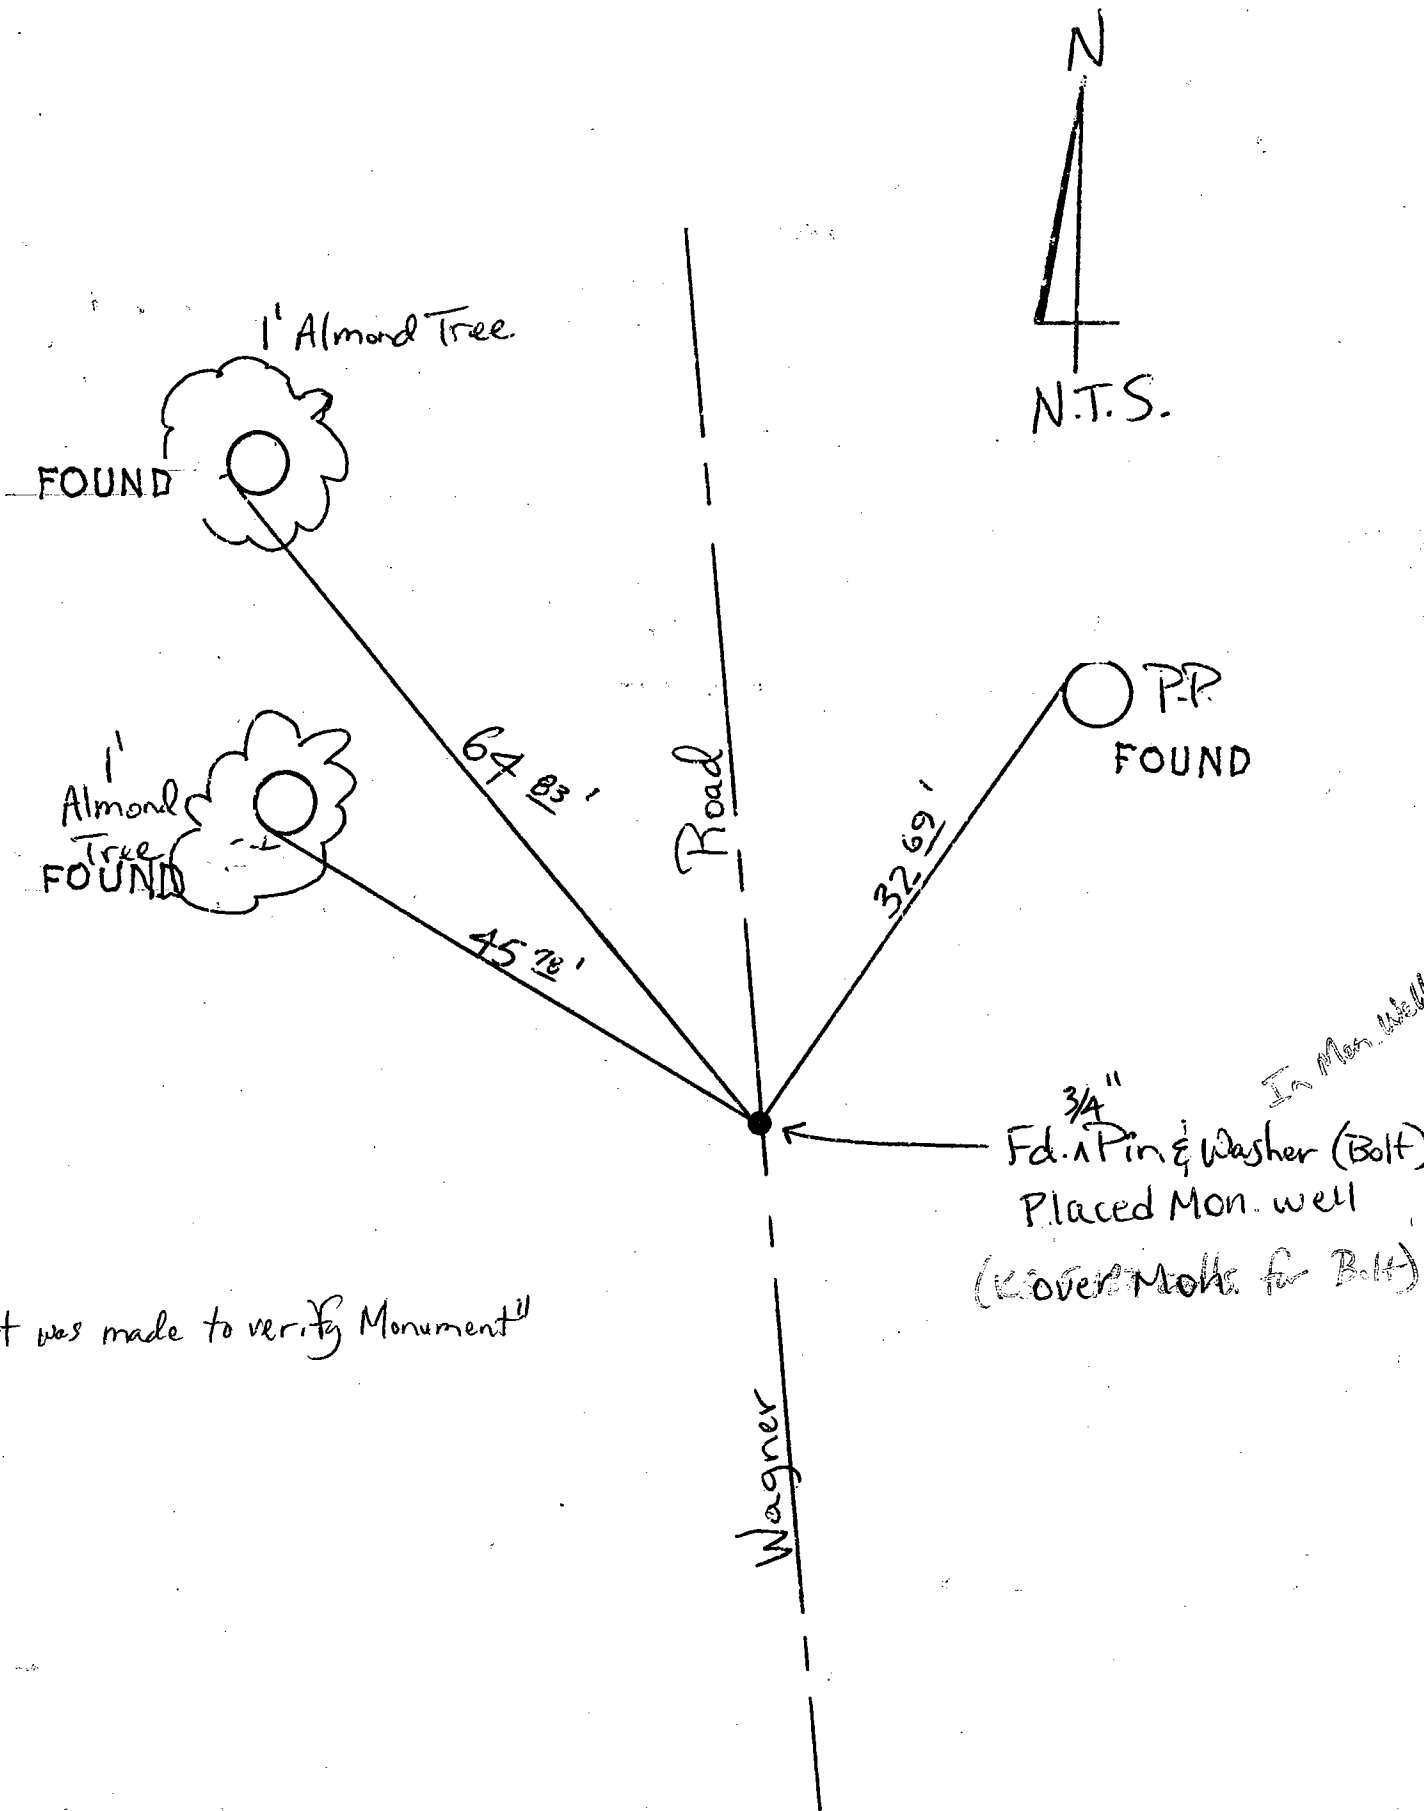 N
N.T.S.
1' Almond Tree.
FOUND
P.P.
FOUND
1'
Almond
Tree
FOUND
64 83'
45 78'
32 69'
Road
In Mon. Well
3/4"
Fd. ^ Pin & Washer (Bolt)
Placed Mon. well
over Mon. for Bolt)
t was made to verify Monument"
Wagner